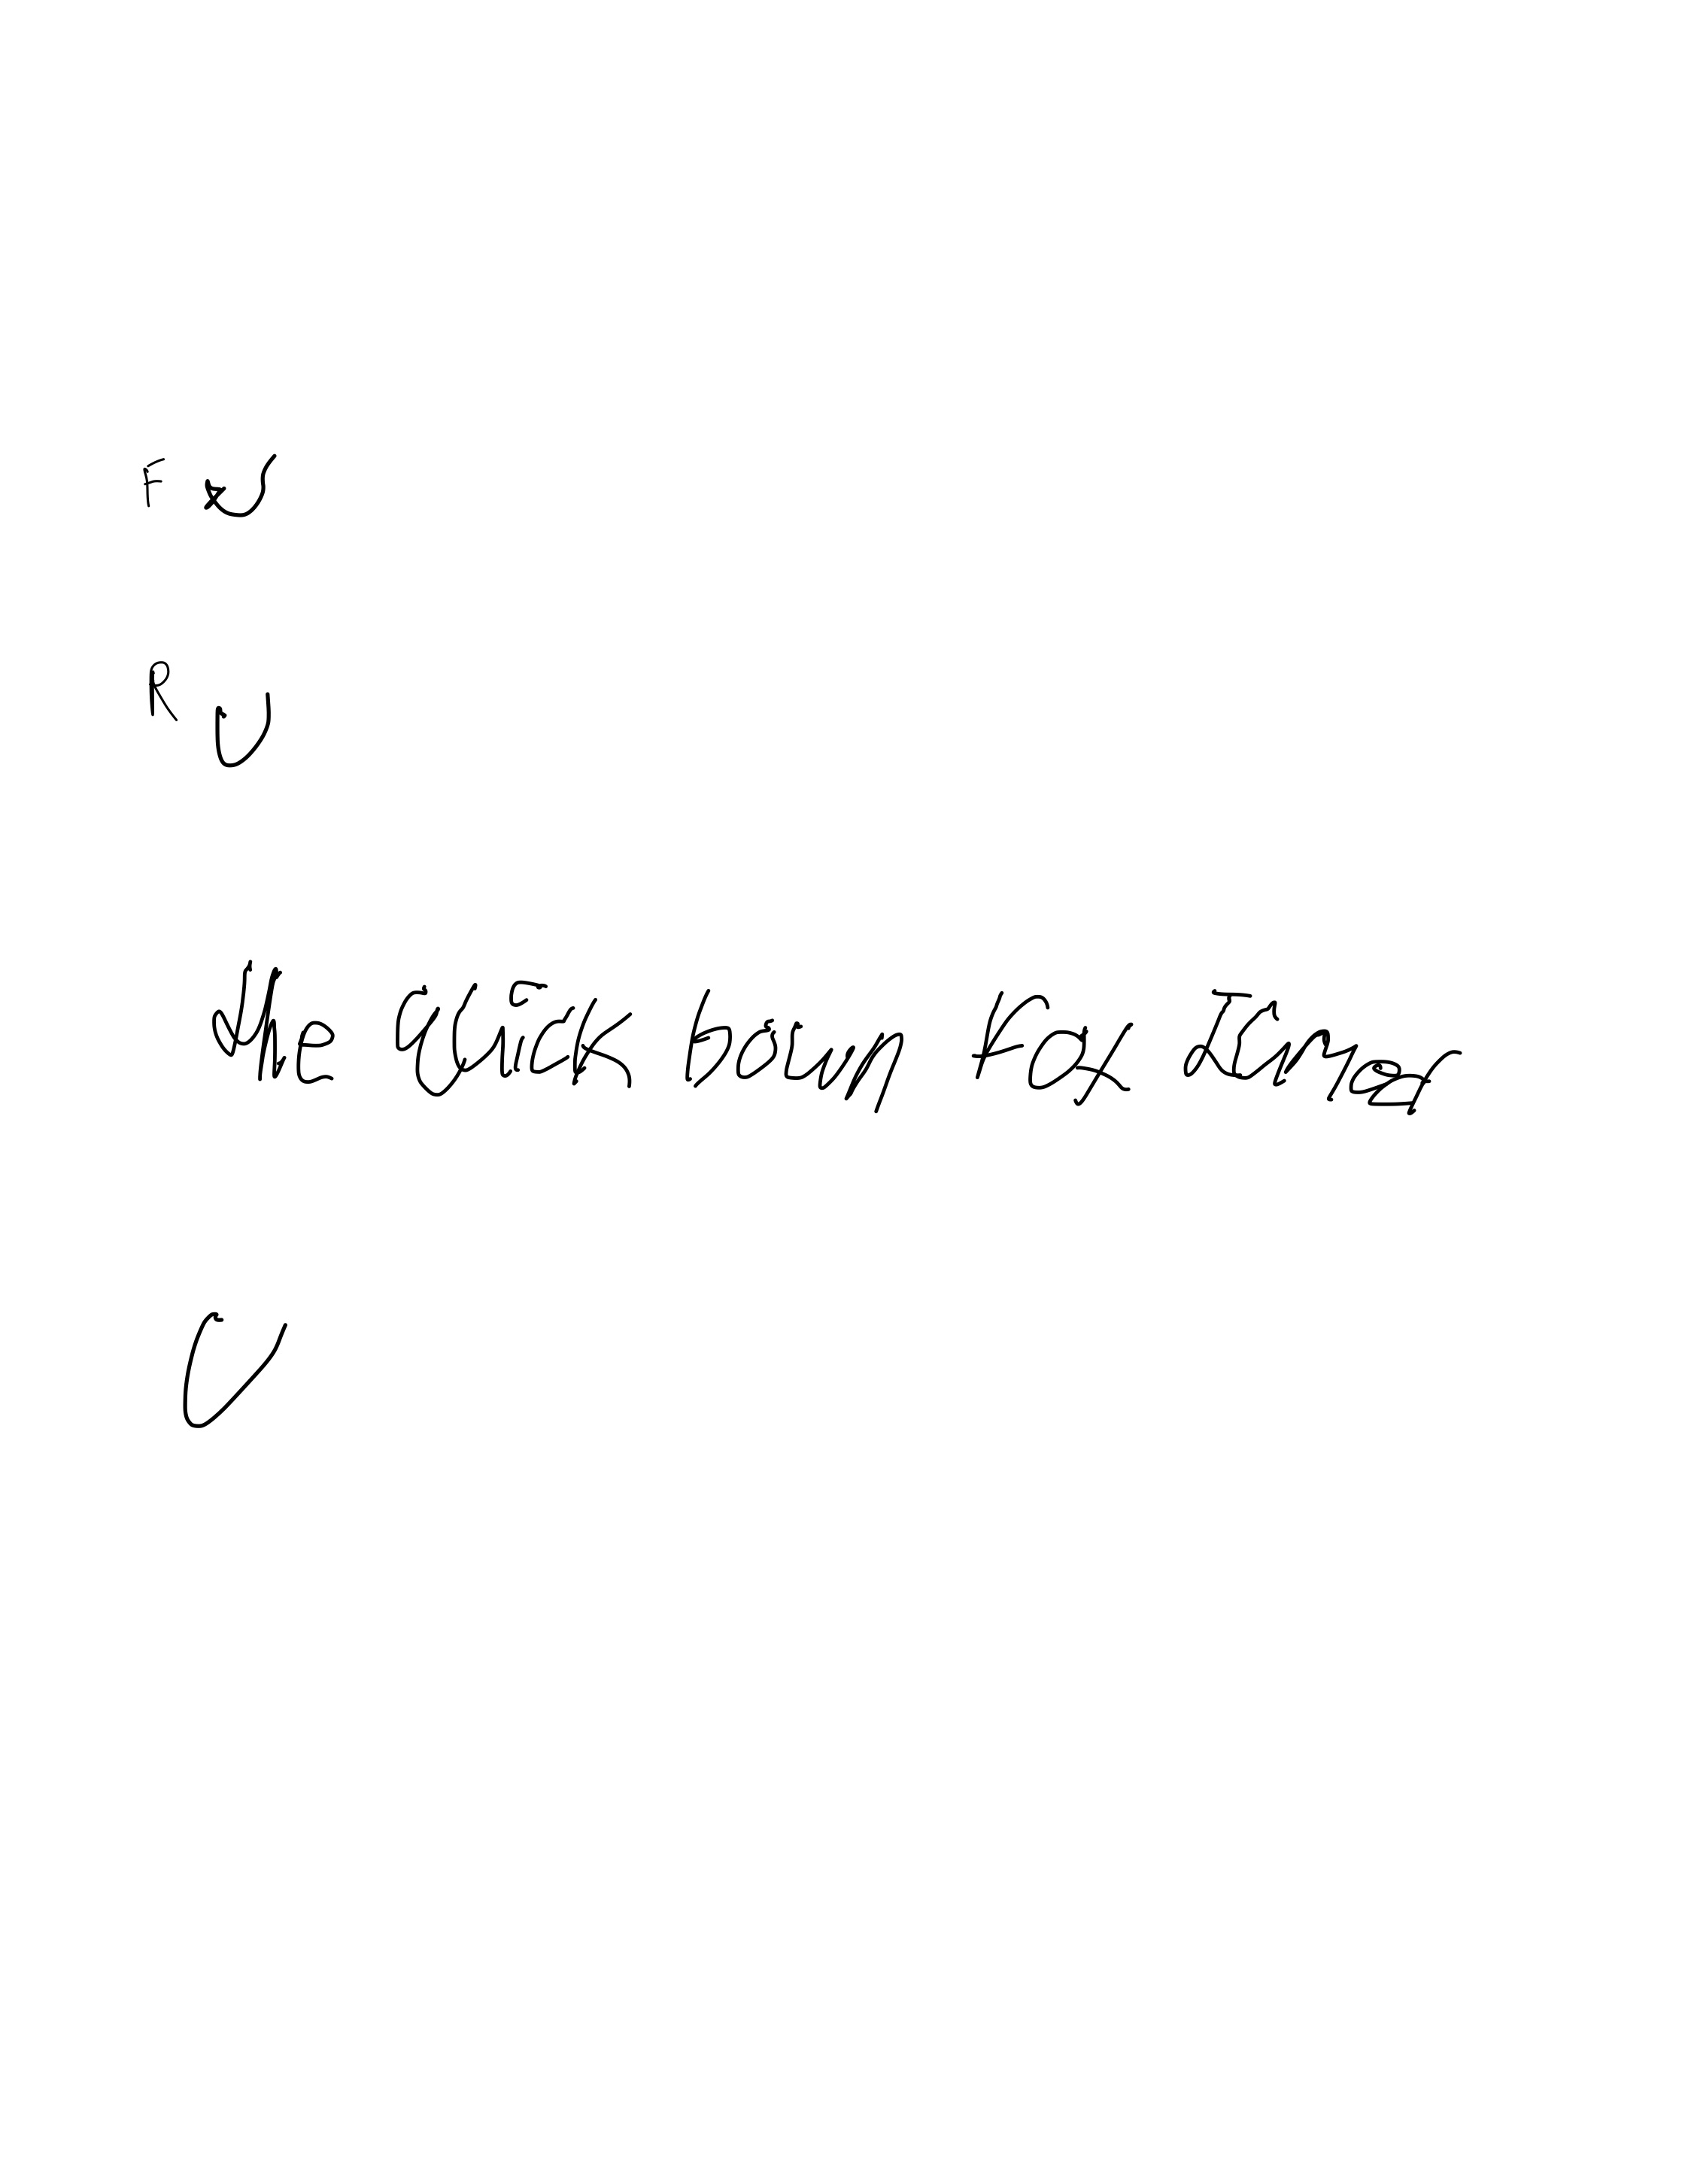 F U
R U
The Quick brown Fox Jumped
U